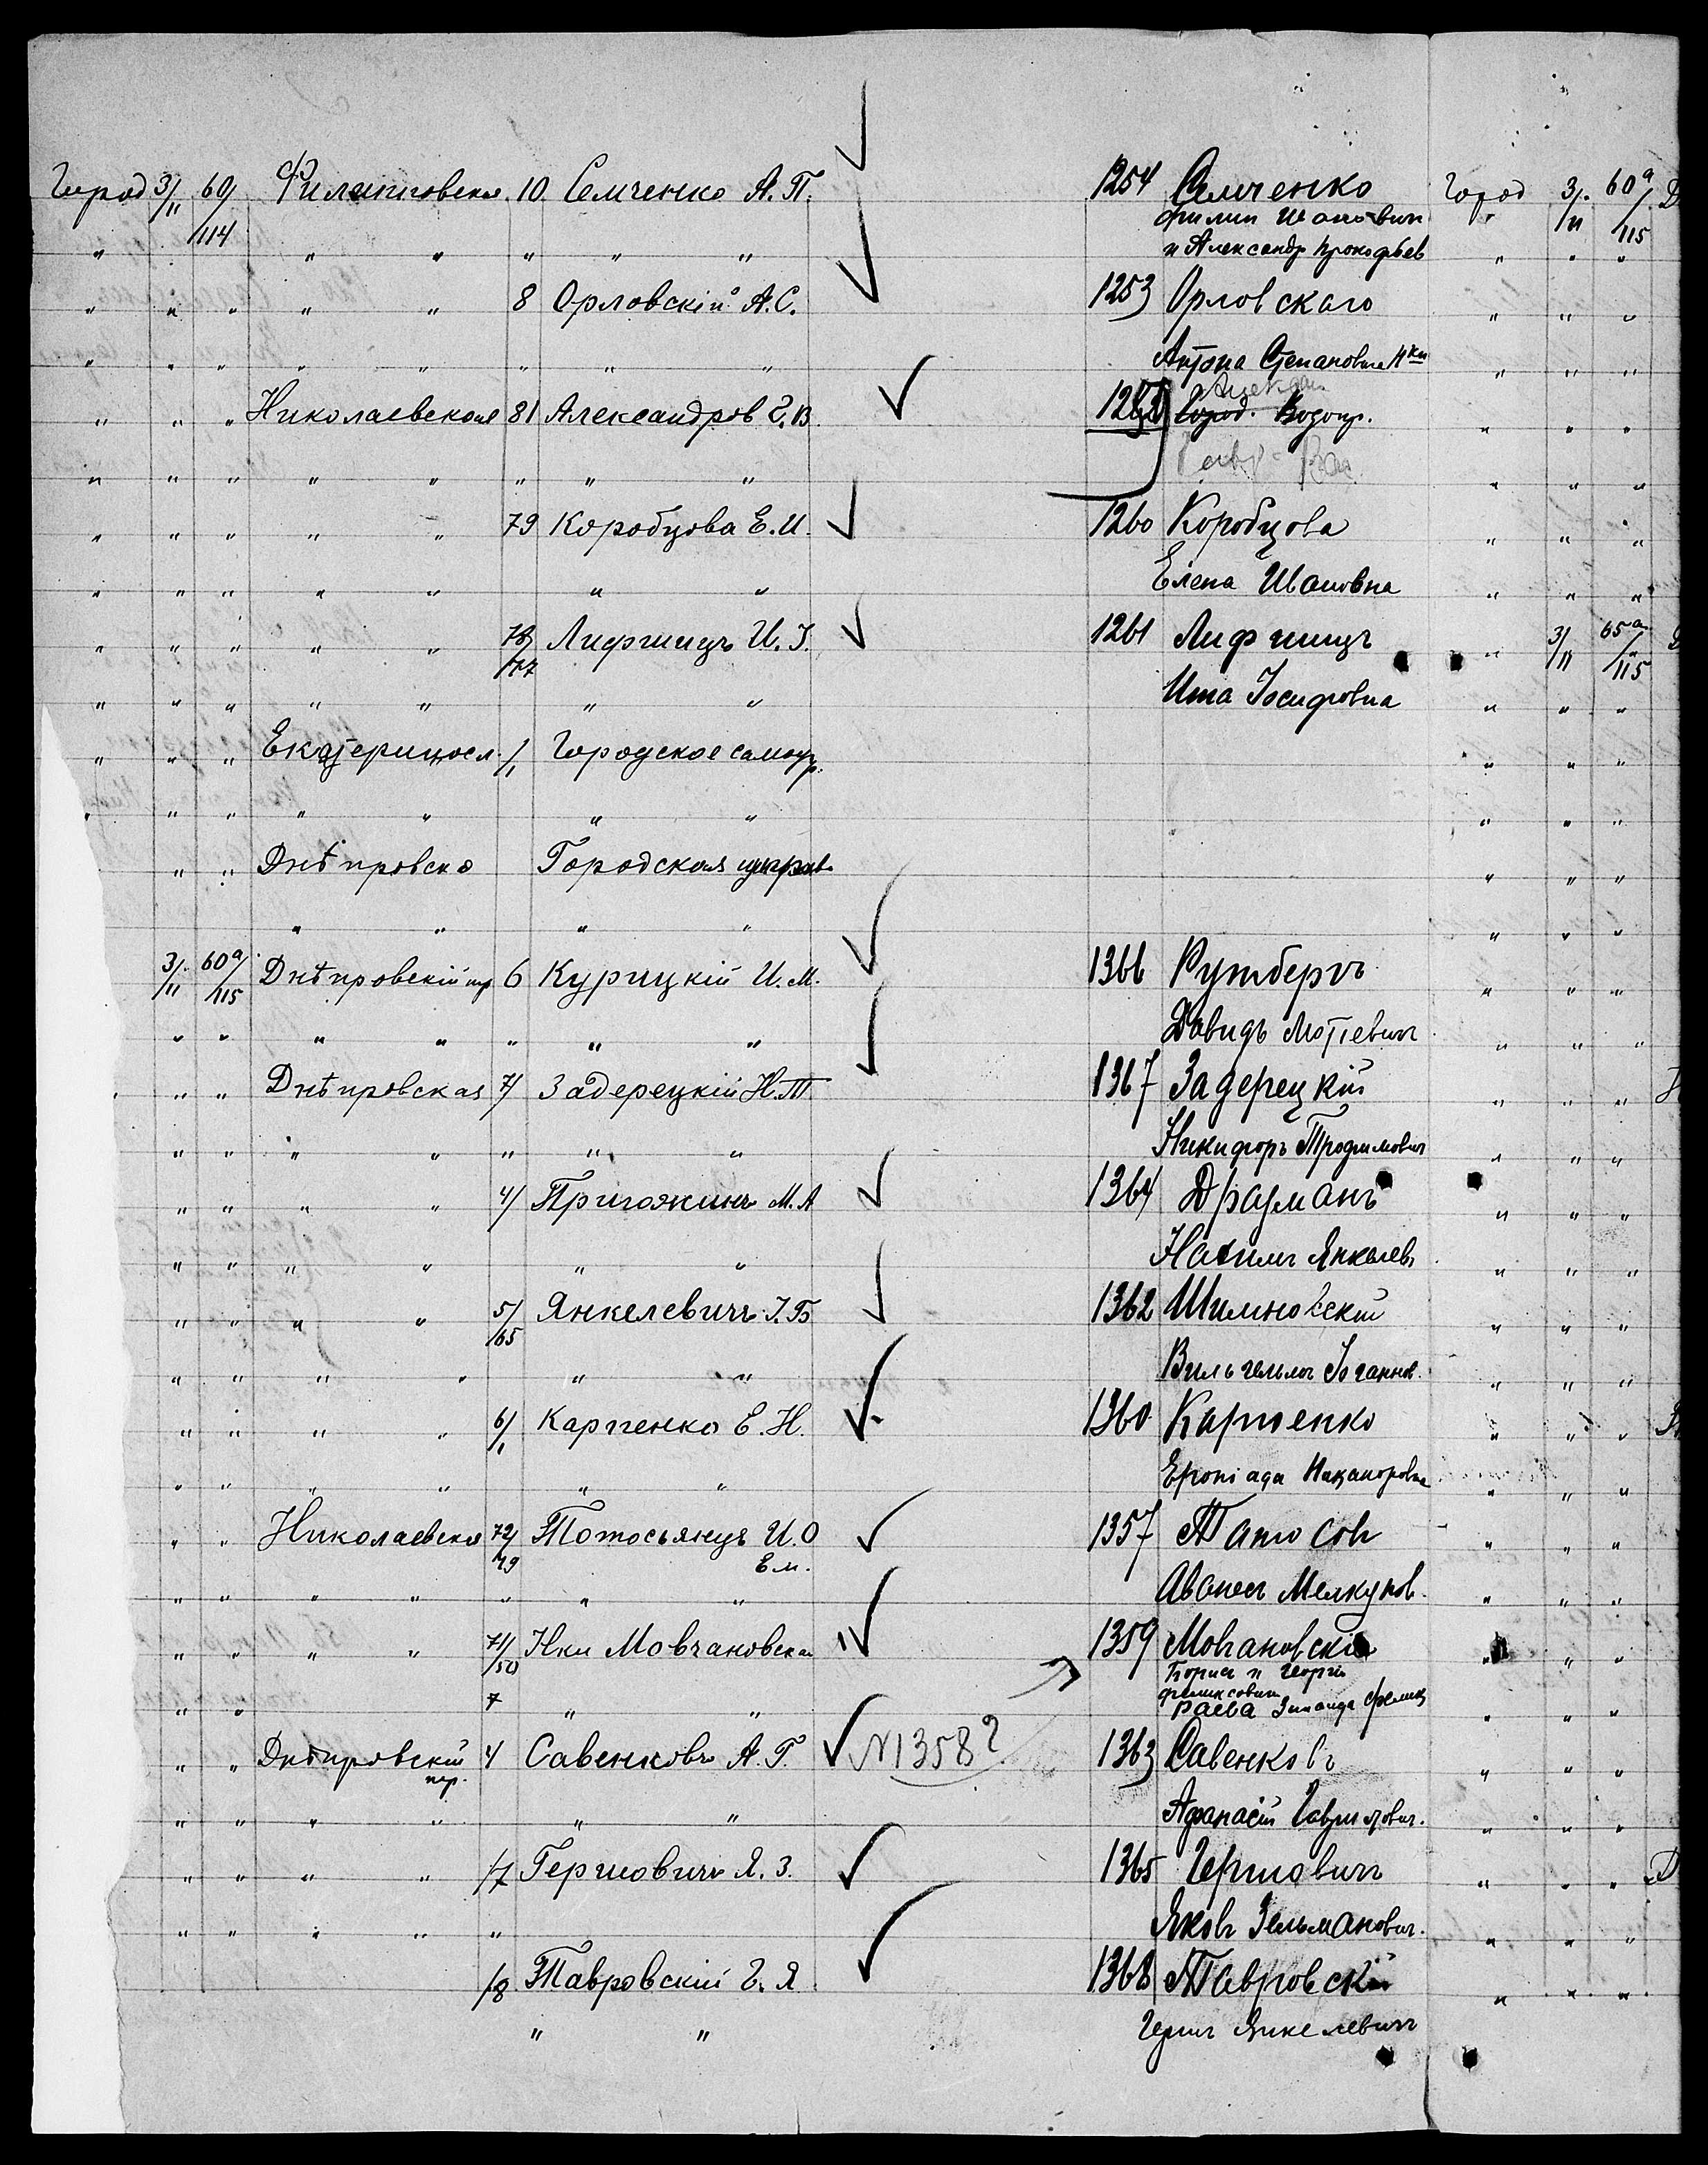 Город 3/11 60/114 Филипповская 10 Семченко А. П. 1254 Семченко Город 3/11 60а/115
Филип Иванович
" " " " " " и Александр Прокофьев " " "
" " " " " 8 Орловскій А. С. 1253 Орловскаго " " "
" " " " " " " " Антона Степановича Н-ки " " "
" " " Николаевская 81 Александров Г. В. Город. Водопр. " " "
" " " " " " " " " " "
" " " " " 79 Коробцова Е. И. 1260 Коробцова " " "
" " " " " " " Елена Ивановна " " "
" " " " " 78/77 Лифшицъ И. І. 1261 Лифшицъ " 3/11 65а/115
" " " " " " " Ита Іосифовна " " "
" " " Екатериносл. /1 Городское самоупр. " " "
" " " " " " " " " "
" " Днѣпровско Городская управ. " " "
" " " " " " "
3/11 60а/115 Днѣпровскій пер 6 Курицкій И. М. 1366 Рутберга " " "
" " " " " " " Давидъ Мотіевич " " "
" " Днѣпровская 7/ Задерецкій Н. Т 1367 Задерецкій " " "
" " " " " " " Никифоръ Трофимович " " "
" " " " 4/ Пригожинъ М. А 1364 Драуманъ " " "
" " " " " " Нахимъ Янкелев. " " "
" " " " 5/65 Янкелевичъ І. Б 1362 Шимновскій " " "
" " " " " " Вильгельмъ Іоганнов. " " "
" " " " 6/1 Карпенко Е. Н. 1360 Карпенко " " "
" " " " " " Никаноровна " " "
" " Николаевская 72/49 Тотосьянцъ И. О 1357 Татосов " " "
Ем.
" " " " " " " Аванес Мелкумов. " " "
" " " " 71/50 Нки Мовчановская 1359 Мовчановскіе " " "
Борис и Георгій
Феликсович
" " 7 " " Раева Зинаида Феликс " " "
" " Днѣпровскій 4 Савенковъ А. Г. N1358? 1363 Савенковъ " " "
пер.
" " " " " " Афанасій Гаврилович. " " "
" " " " /7 Гершовичъ Я. З. 1365 Гершович " " "
" " " " " Яковъ Зельманович. " " "
/8 Тавровскій Г. Я 1368 Тавровскій " " "
" " Герш Янкелевич